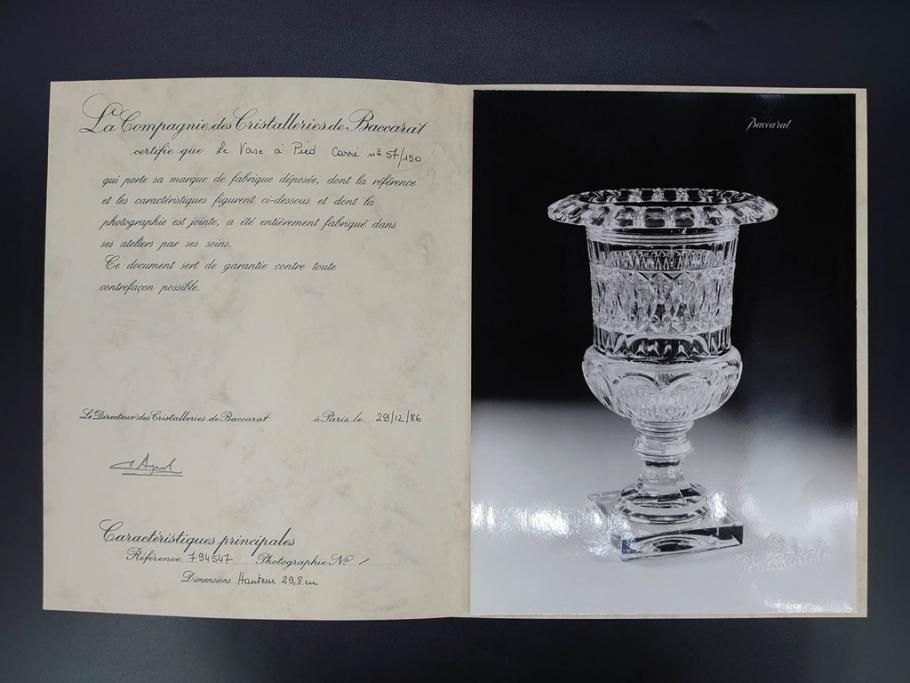 La Compagnie des Cristalleries de Baccarat
certifie que Le Vase à Pied Carré nº 57/150
qui porte sa marque de fabrique déposée, dont la référence
et les caractéristiques figurent ci-dessous et dont la
photographie est jointe, a été entièrement fabriqué dans
ses ateliers par ses soins.
Ce document sert de garantie contre toute
contrefaçon possible.
Le Directeur des Cristalleries de Baccarat à Paris, le 29/12/86
Caractéristiques principales
Référence 794547 Photographie Nº /
Dimensions Hauteur 29,8 cm
Baccarat